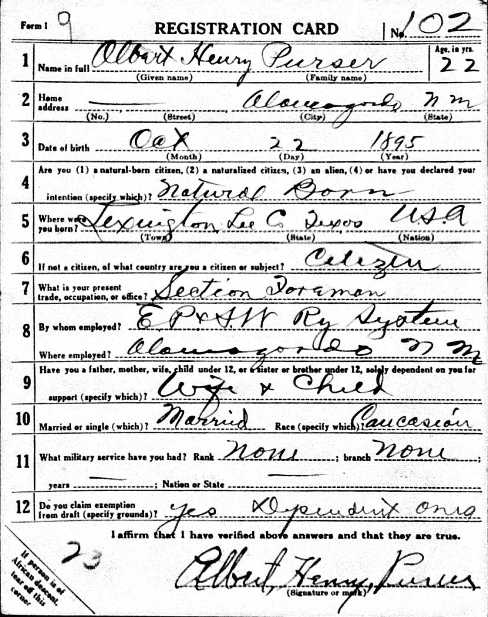 Form 1 9 REGISTRATION CARD No. 102
1 Name in full Albert Henry Purser Age, in yrs. 22
(Given name) (Family name)
2 Home address — Alamogordo N M
(No.) (Street) (City) (State)
3 Date of birth Oct 22 1895
(Month) (Day) (Year)
Are you (1) a natural-born citizen, (2) a naturalized citizen, (3) an alien, (4) or have you declared your
4 intention (specify which)? Natural Born
5 Where were you born? Lexington Lee C. Texas USA
(Town) (State) (Nation)
6 If not a citizen, of what country are you a citizen or subject? Citizen
7 What is your present trade, occupation, or office? Section Foreman
8 By whom employed? E P & S.W Ry System
Where employed? Alamagordo N M
Have you a father, mother, wife, child under 12, or a sister or brother under 12, solely dependent on you for
9 support (specify which)? Wife & Child
10 Married or single (which)? Married Race (specify which)? Caucasian
11 What military service have you had? Rank None ; branch None ;
years — ; Nation or State —
12 Do you claim exemption from draft (specify grounds)? yes Dependent ones
I affirm that I have verified above answers and that they are true.
23
Albert, Henry, Purser
(Signature or mark)
If person is of
African descent,
tear off this
corner.